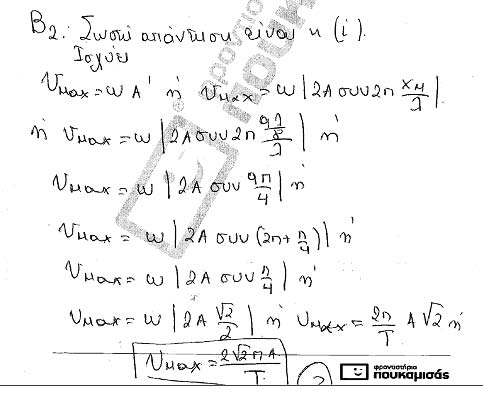 Β2. Σωστή απάντηση είναι η (i).
Ισχύει
υmax = ω A' ή υmax = ω |2A συν 2π xM/λ|
ή υmax = ω |2A συν 2π (9λ/8)/λ| ή
υmax = ω |2A συν 9π/4| ή
υmax = ω |2A συν (2π + π/4)| ή
υmax = ω |2A συν π/4| ή
υmax = ω |2A √2/2| ή υmax = 2π/T A √2 ή
υmax = 2√2 π A/T
φροντιστήριο
πουκαμισάς